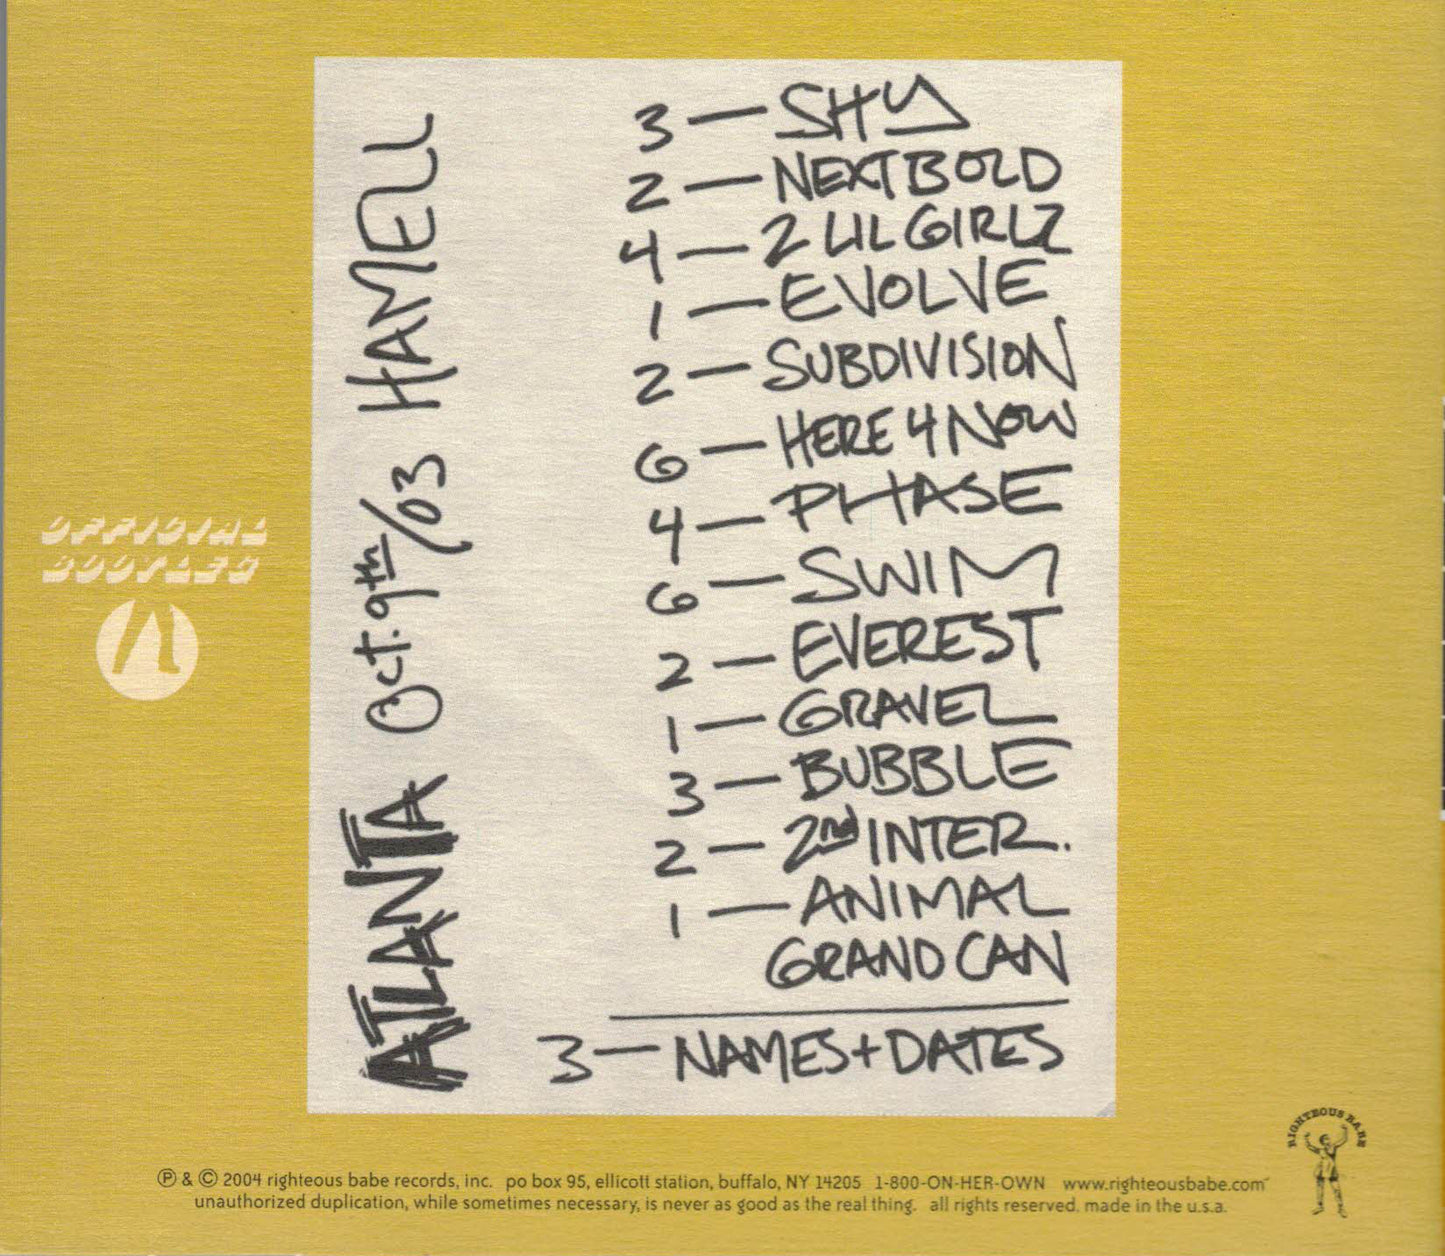 ATLANTA Oct. 9th/03 HAMELL
3 — SHY
2 — NEXT BOLD
4 — 2 LIL GIRLZ
1 — EVOLVE
2 — SUBDIVISION
6 — HERE 4 NOW
4 — PHASE
6 — SWIM
2 — EVEREST
1 — GRAVEL
3 — BUBBLE
2 — 2nd INTER.
1 — ANIMAL
GRAND CAN
3 — NAMES + DATES
OFFICIAL
BOOTLEG
RIGHTEOUS BABE
℗ & © 2004 righteous babe records, inc. po box 95, ellicott station, buffalo, NY 14205 1-800-ON-HER-OWN www.righteousbabe.com
unauthorized duplication, while sometimes necessary, is never as good as the real thing. all rights reserved. made in the u.s.a.